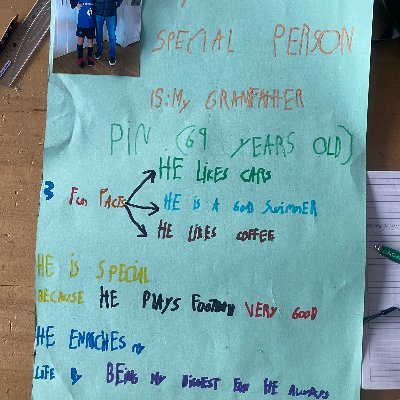 SPECIAL PERSON
IS: MY GRANFATHER
PIN (69 YEARS OLD)
HE LIKES CARS
3 FUN FACTS HE IS A GOOD SWIMMER
HE LIKES COFFEE
HE IS SPECIAL
BECAUSE HE PLAYS FOOTBALL VERY GOOD
HE ENRICHES MY
LIFE BY BEING MY BIGGEST FAN HE ALWAYS